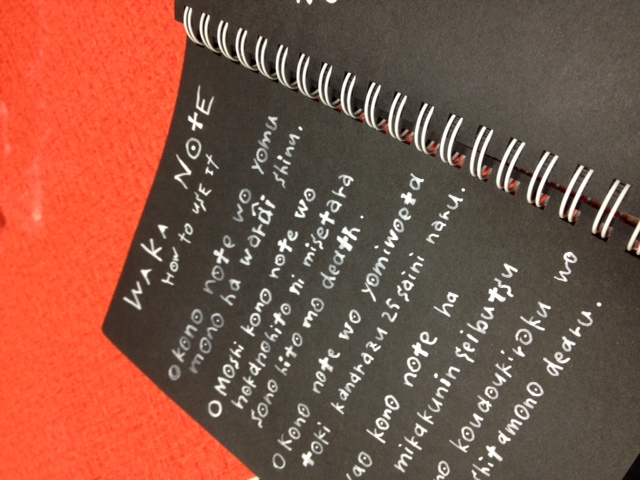 WAKA NOTE
HOW TO USE IT
O Kono note wo yomu
mono ha warai shinu.
O Moshi kono note wo
hokanohito ni misetara
sono hito mo death.
O Kono note wo yomiwoeta
toki kanarazu 25 saini naru.
nao kono note ha
mikakunin seibutsu
no koudoukiroku wo
shitamono dearu.